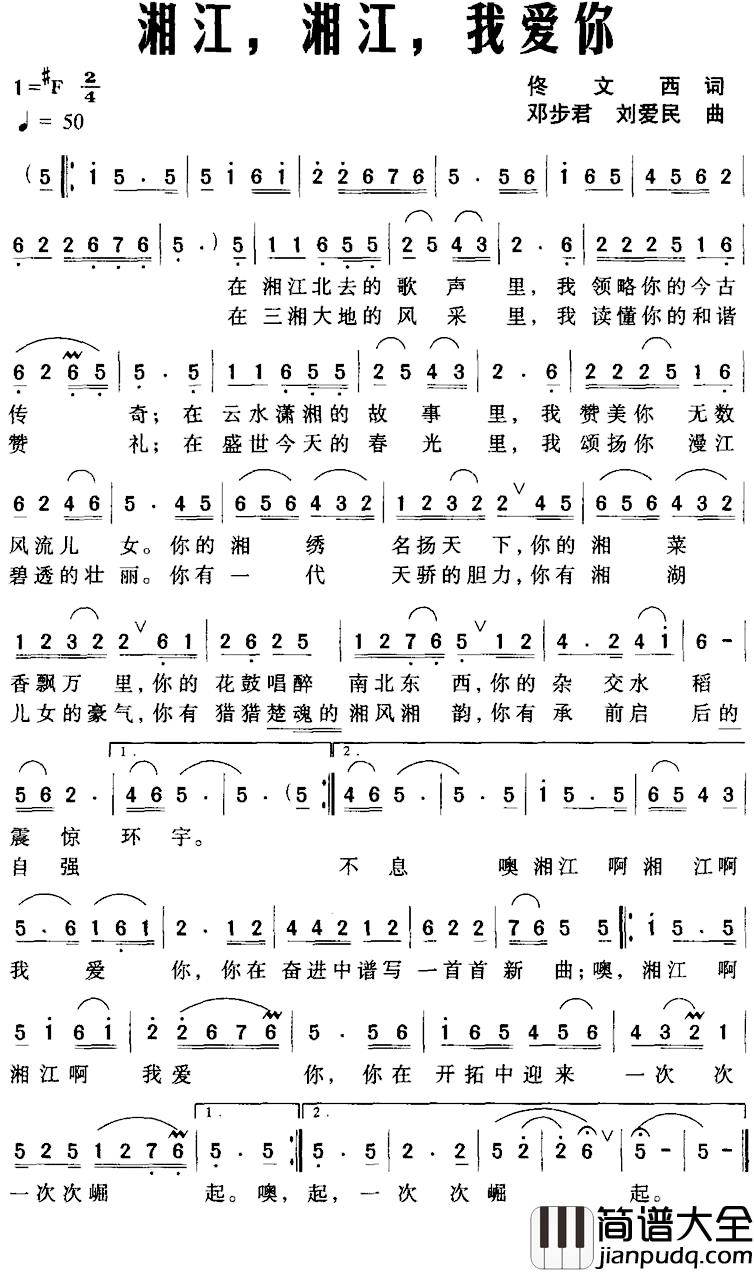 湘江，湘江，我爱你
1=#F 2/4
♩= 50
佟 文 西 词
邓步君 刘爱民 曲
(5 1 5 . 5 5 1 6 1 2 2 6 7 6 5 . 5 6 1 6 5 4 5 6 2
6 2 2 6 7 6 5 . ) 5 1 1 6 5 5 2 5 4 3 2 . 6 2 2 2 5 1 6
在 湘江北去的 歌 声 里，我 领略你的今古
在 三湘大地的 风 采 里，我 读懂你的和谐
6 2 6 5 5 . 5 1 1 6 5 5 2 5 4 3 2 . 6 2 2 2 5 1 6
传 奇；在 云水潇湘的 故 事 里，我 赞美你 无数
赞 礼；在 盛世今天的 春 光 里，我 颂扬你 漫江
6 2 4 6 5 . 4 5 6 5 6 4 3 2 1 2 3 2 2 4 5 6 5 6 4 3 2
风流儿 女。你的 湘 绣 名扬天 下，你的 湘 菜
碧透的壮 丽。你有 一 代 天骄的胆 力，你有 湘 湖
1 2 3 2 2 6 1 2 6 2 5 1 2 7 6 5 1 2 4 . 2 4 1 6 -
香飘万 里，你的 花鼓唱醉 南北东 西，你的 杂 交水 稻
儿女的豪气，你有 猎猎楚魂的 湘风湘 韵，你有 承 前启 后的
1. 2.
5 6 2 . 4 6 5 . 5 . (5 4 6 5 . 5 . 5 1 5 . 5 6 5 4 3
震 惊 环 宇。
自 强 不 息 噢湘江 啊湘 江啊
5 . 6 1 6 1 2 . 1 2 4 4 2 1 2 6 2 2 7 6 5 5 1 5 . 5
我 爱 你，你在 奋进中谱写 一首首 新 曲；噢，湘江 啊
5 1 6 1 2 2 6 7 6 5 . 5 6 1 6 5 4 5 6 4 3 2 1
湘江啊 我爱 你，你在 开拓中迎来 一次 次
1. 2.
5 2 5 1 2 7 6 5 . 5 5 . 5 2 . 2 5 2 2 6 5 - 5 -
一次次崛 起。噢，起，一 次 次崛 起。
简谱大全
jianpudq.com